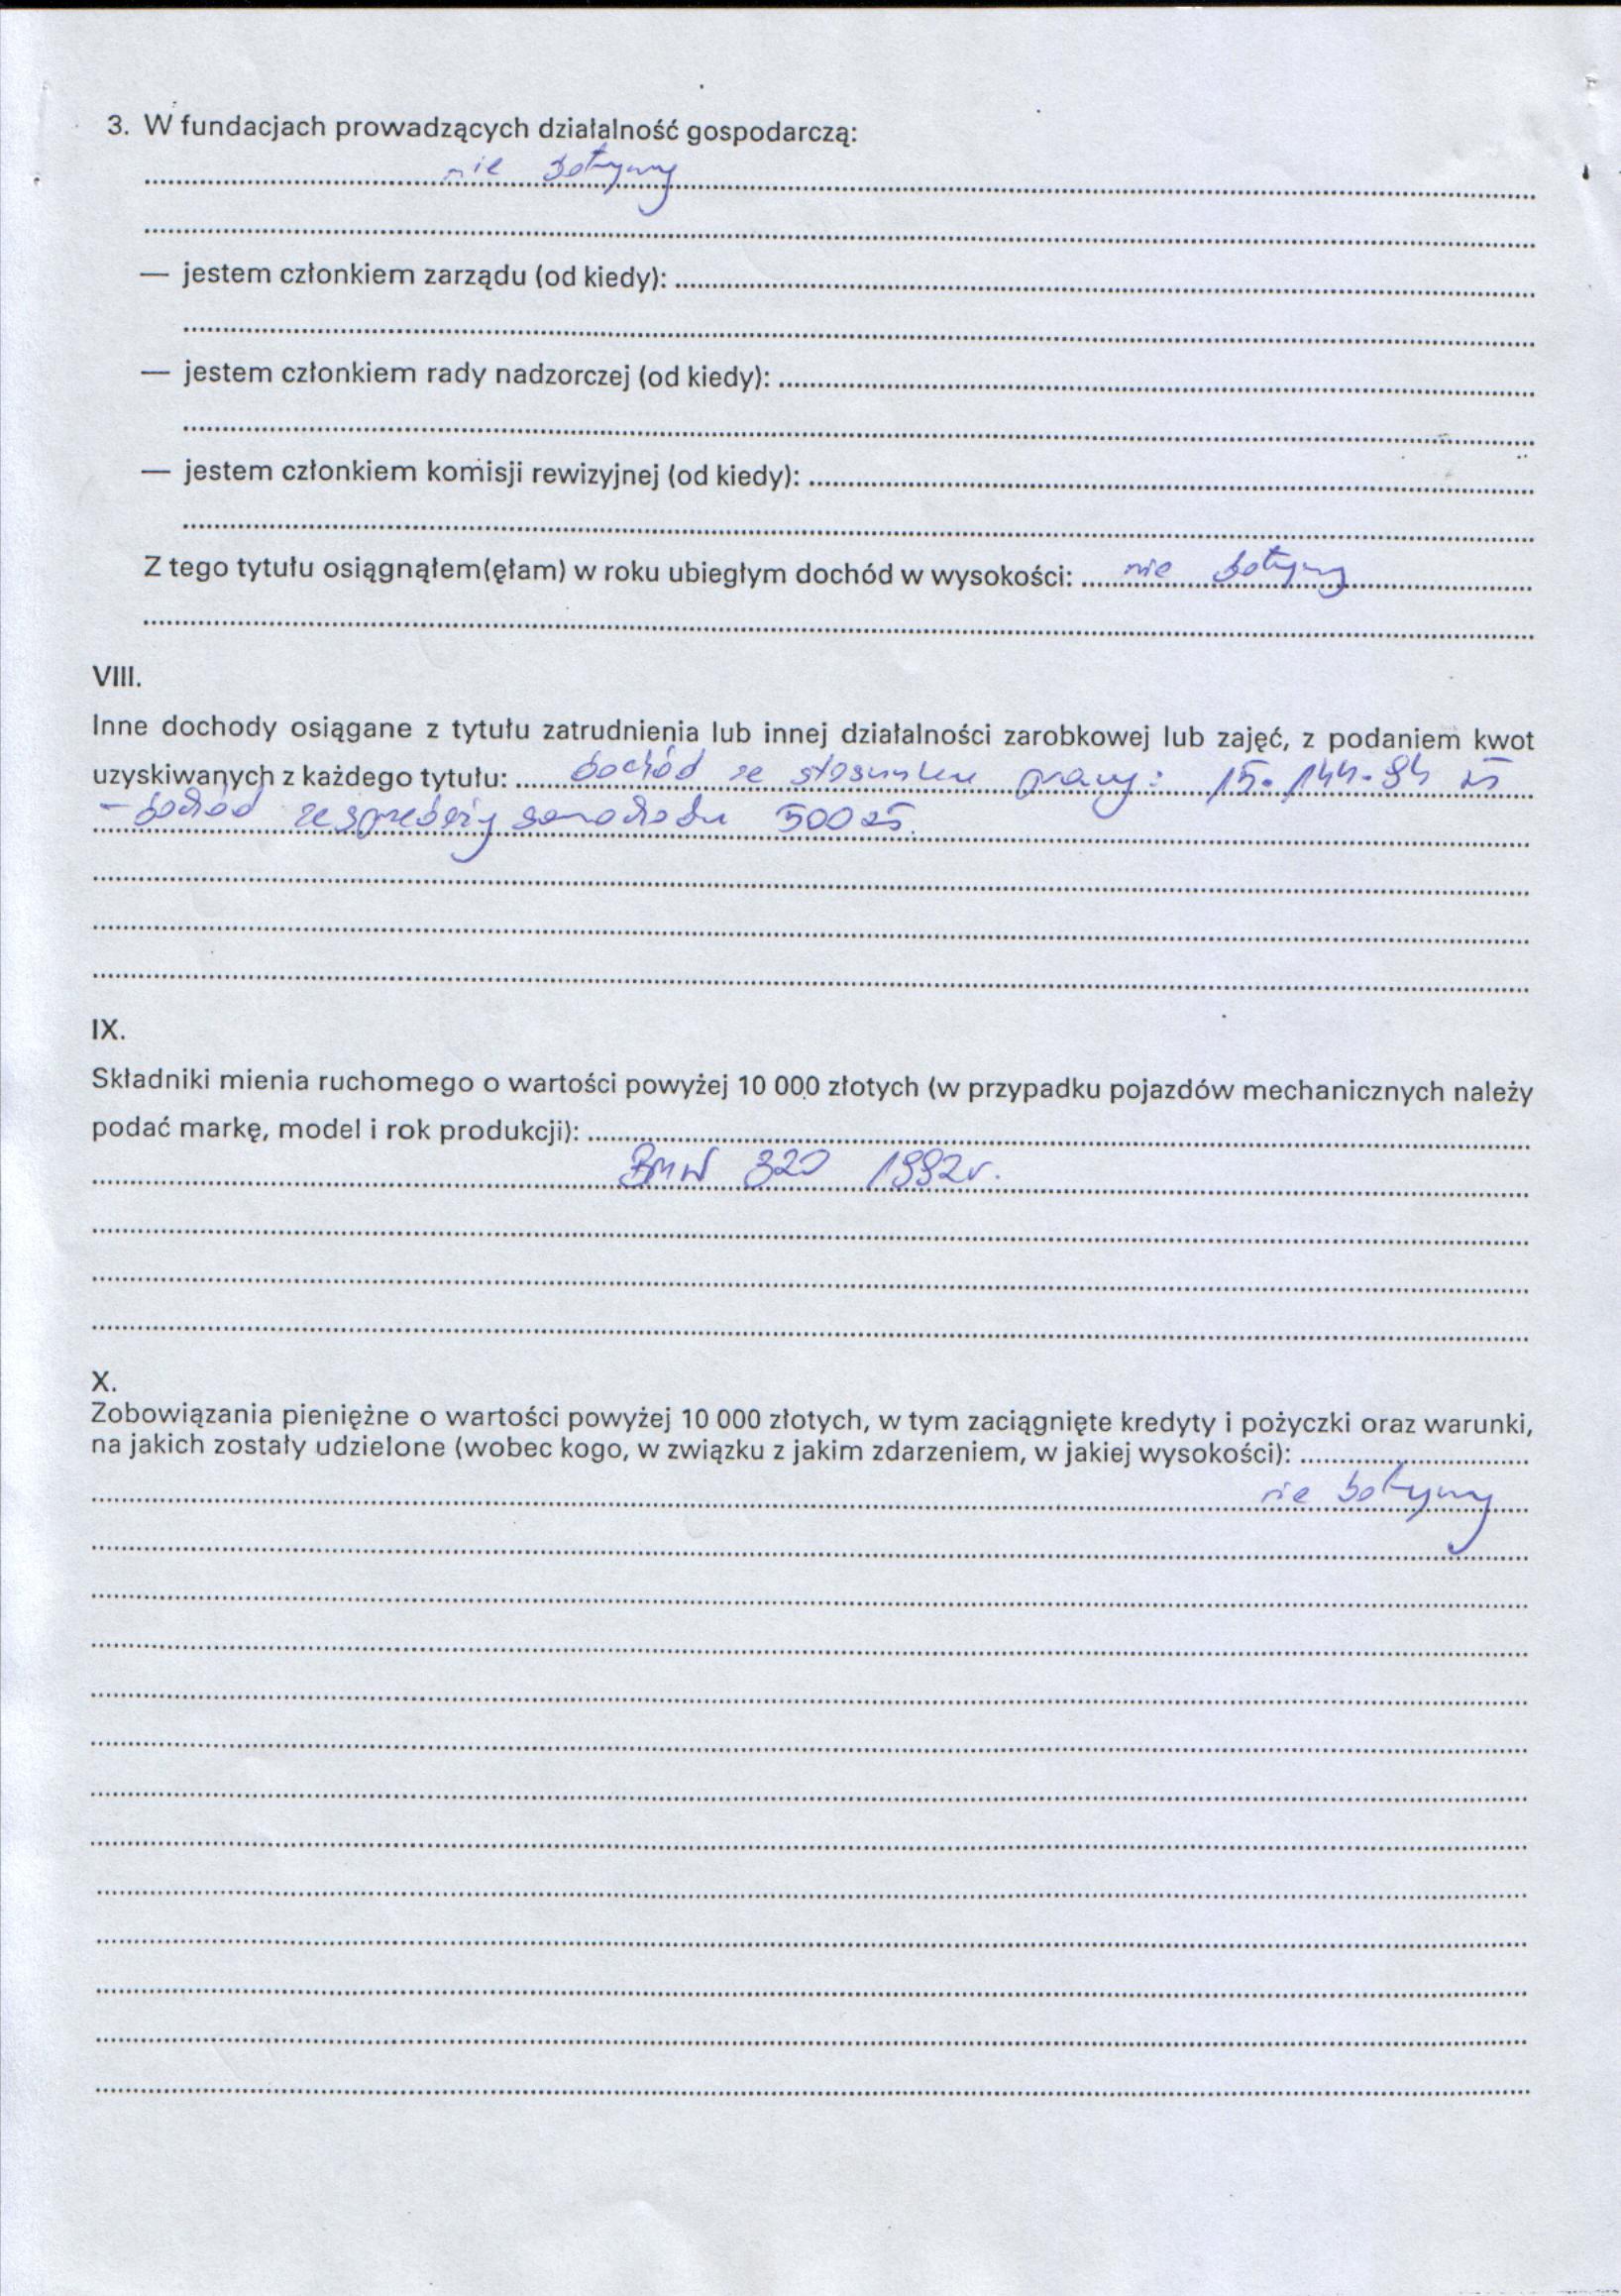 3. W fundacjach prowadzących działalność gospodarczą:
nie dotyczy
— jestem członkiem zarządu (od kiedy):
— jestem członkiem rady nadzorczej (od kiedy):
— jestem członkiem komisji rewizyjnej (od kiedy):
Z tego tytułu osiągnąłem(ęłam) w roku ubiegłym dochód w wysokości: nie dotyczy
VIII.
Inne dochody osiągane z tytułu zatrudnienia lub innej działalności zarobkowej lub zajęć, z podaniem kwot
uzyskiwanych z każdego tytułu: dochód ze stosunku pracy: 15.144.94 zł
- dochód ze sprzedaży samochodu 500 zł.
IX.
Składniki mienia ruchomego o wartości powyżej 10 000 złotych (w przypadku pojazdów mechanicznych należy
podać markę, model i rok produkcji):
BMW 320 1992r.
X.
Zobowiązania pieniężne o wartości powyżej 10 000 złotych, w tym zaciągnięte kredyty i pożyczki oraz warunki,
na jakich zostały udzielone (wobec kogo, w związku z jakim zdarzeniem, w jakiej wysokości):
nie dotyczy